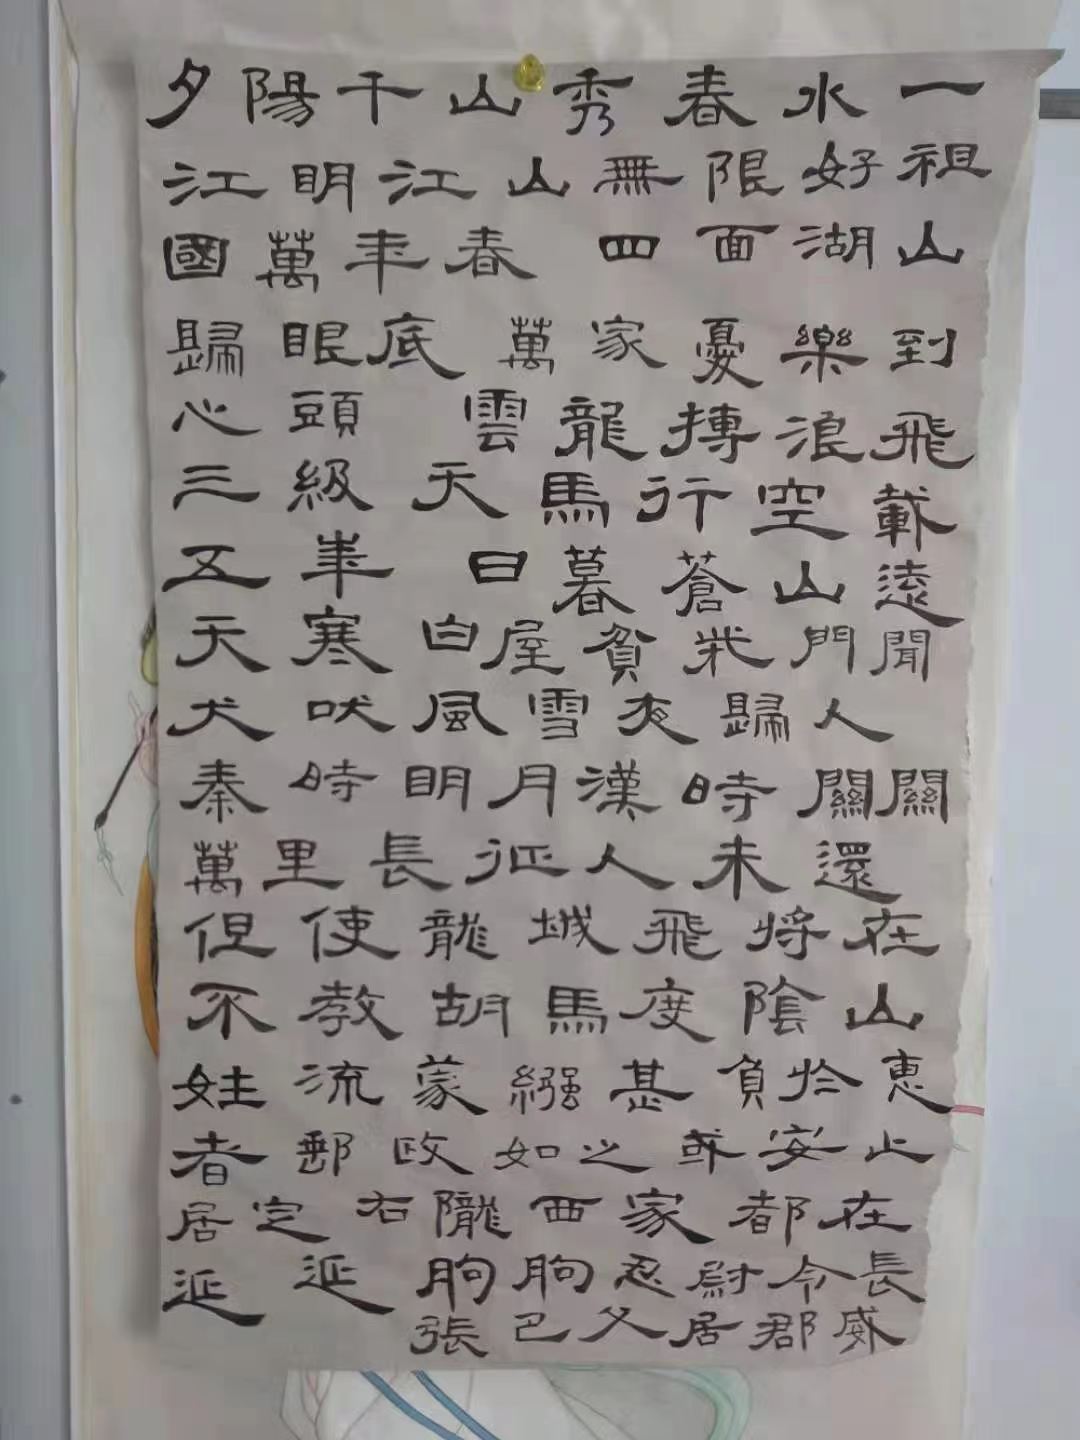 夕陽千山秀春水一
江明江山無限好祖
國萬年春 四面湖山
歸眼底 萬家憂樂到
心頭 雲龍摶浪飛
三級 天馬行空載
五年 日暮蒼山遠
天寒白屋貧柴門聞
犬吠風雪夜歸人
秦時明月漢時關關
萬里長征人未還
但使龍城飛將在
不教胡馬度陰山
姓流蒙繦甚負於惠
者郵政如之或安止
居定 右隴西家都在
延 延朐朐忍尉令長
張已父居郡威